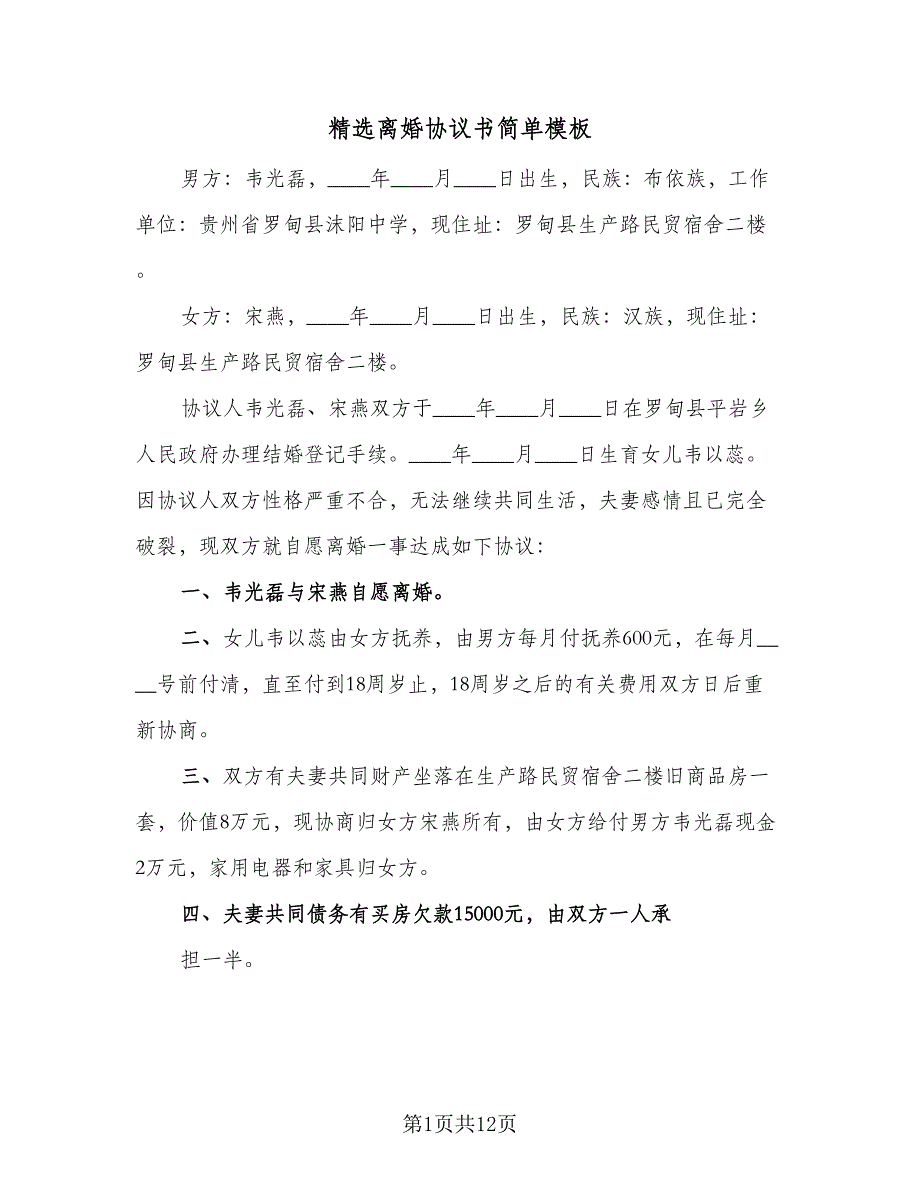 精选离婚协议书简单模板
男方：韦光磊，____年____月____日出生，民族：布依族，工作
单位：贵州省罗甸县沫阳中学，现住址：罗甸县生产路民贸宿舍二楼
。
女方：宋燕，____年____月____日出生，民族：汉族，现住址：
罗甸县生产路民贸宿舍二楼。
协议人韦光磊、宋燕双方于____年____月____日在罗甸县平岩乡
人民政府办理结婚登记手续。____年____月____日生育女儿韦以蕊。
因协议人双方性格严重不合，无法继续共同生活，夫妻感情且已完全
破裂，现双方就自愿离婚一事达成如下协议：
一、韦光磊与宋燕自愿离婚。
二、女儿韦以蕊由女方抚养，由男方每月付抚养600元，在每月__
__号前付清，直至付到18周岁止，18周岁之后的有关费用双方日后重
新协商。
三、双方有夫妻共同财产坐落在生产路民贸宿舍二楼旧商品房一
套，价值8万元，现协商归女方宋燕所有，由女方给付男方韦光磊现金
2万元，家用电器和家具归女方。
四、夫妻共同债务有买房欠款15000元，由双方一人承
担一半。
第1页共12页